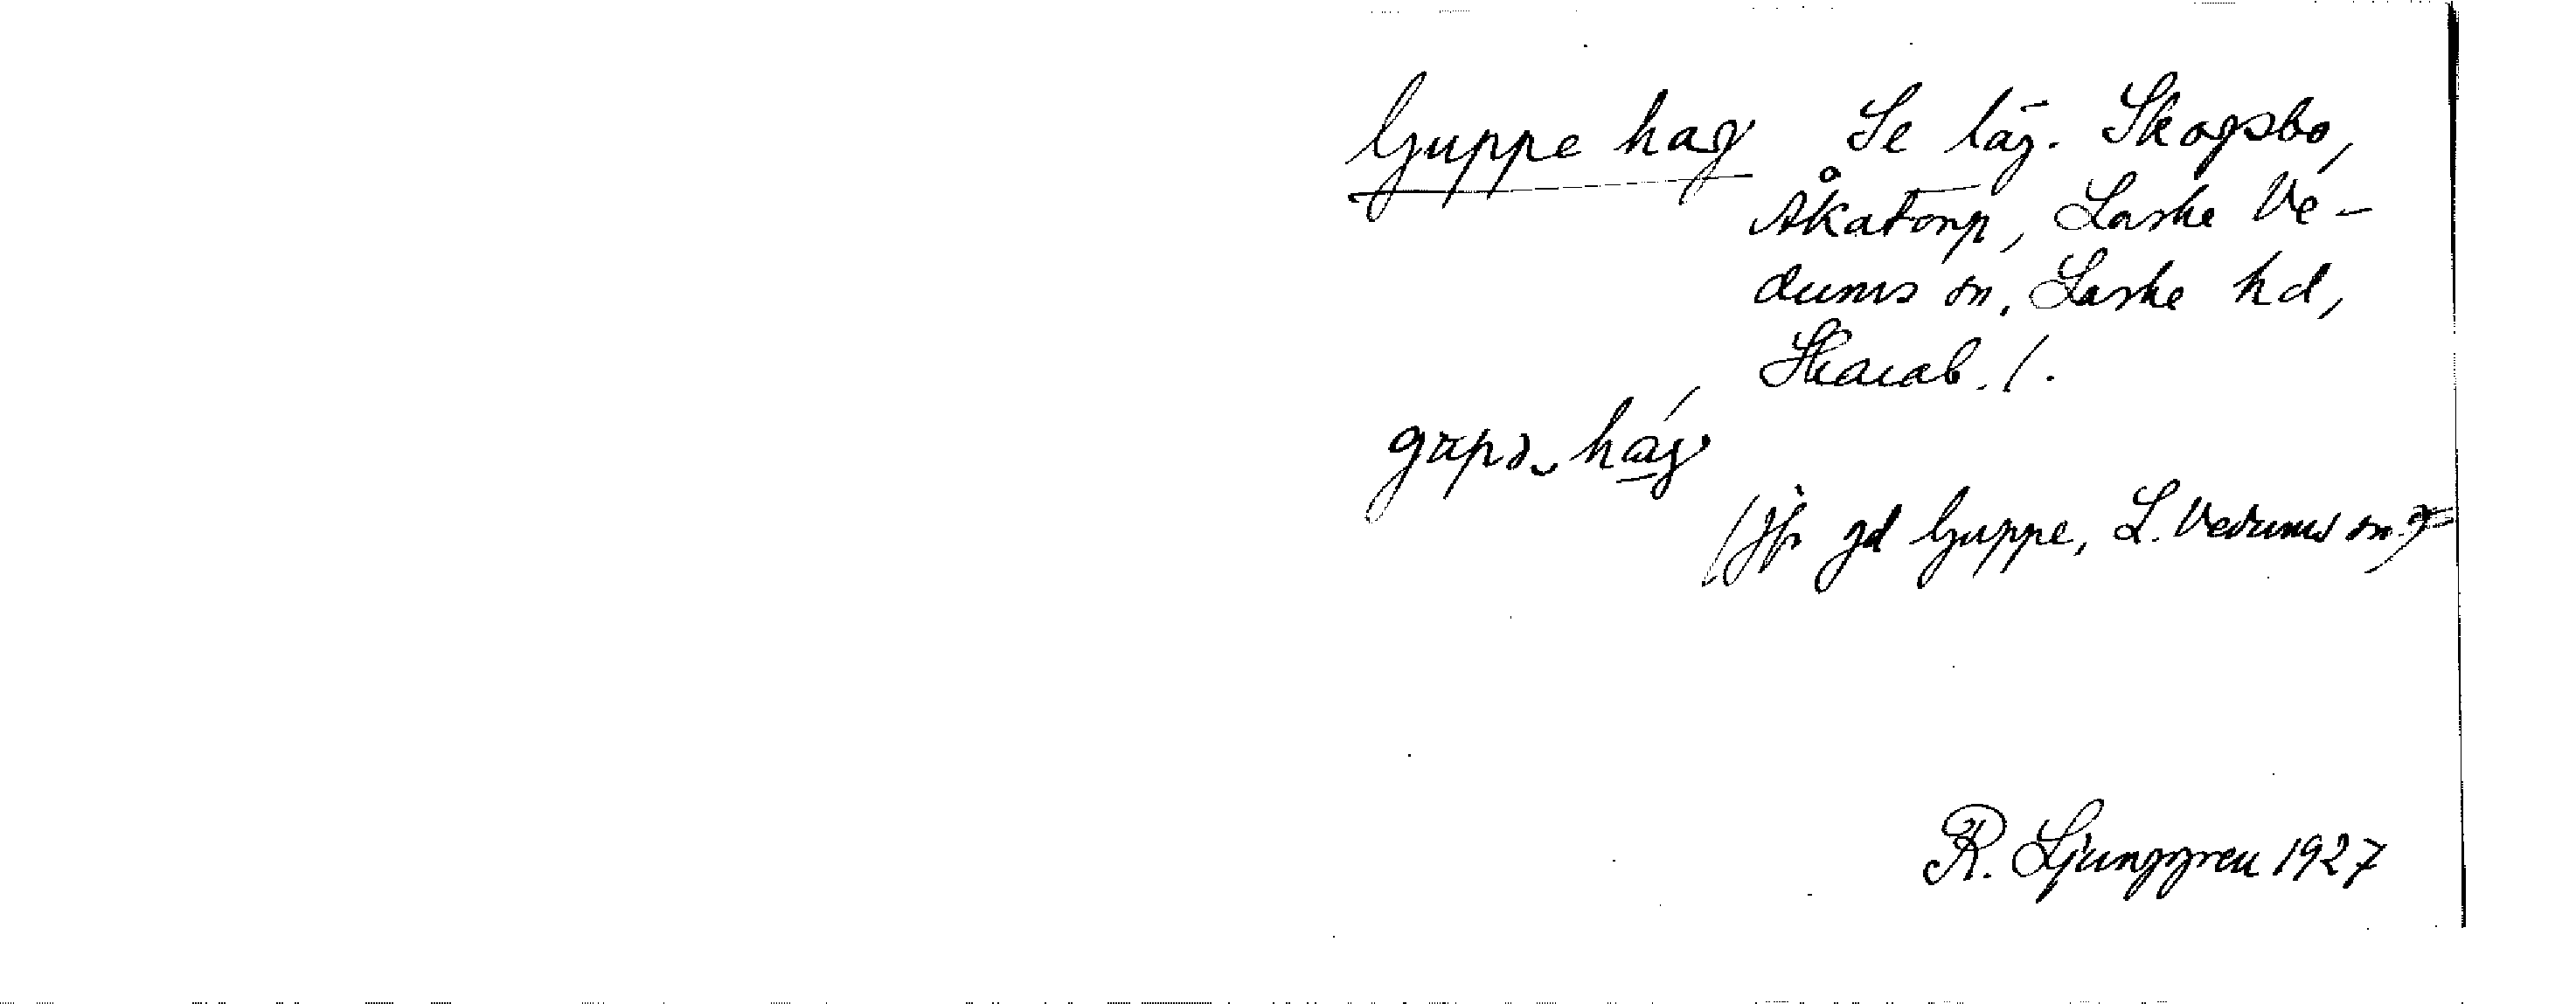 Guppe hag Se läg. Skogsbo,
Åkatorp, Larske Ve-
dums sn, Laske hd,
Skarab. l.
gäpə hág
(Jfr gd Guppe, L. Vedums sn.)
R. Ljunggren 1927